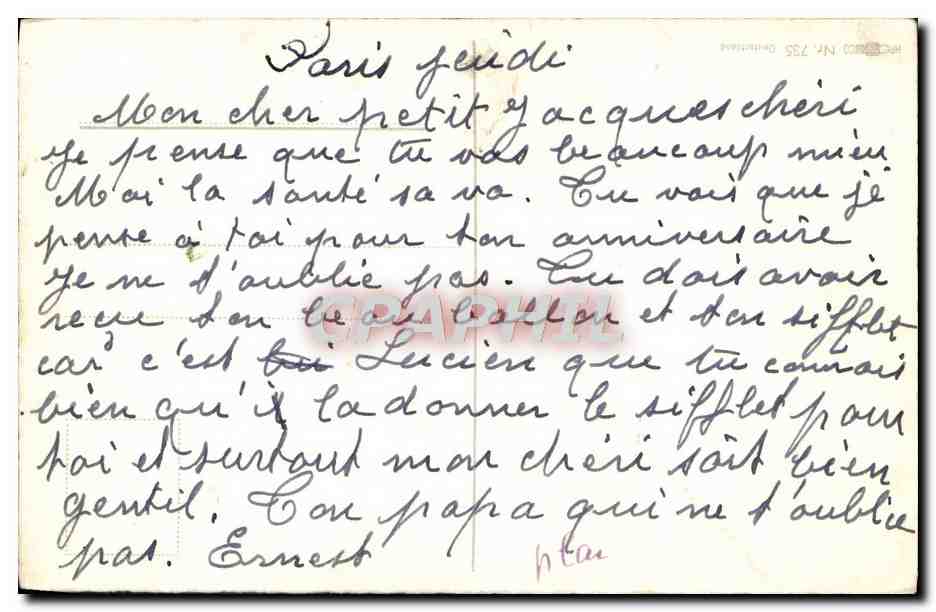 Paris jeudi
Mon cher petit Jacques chéri
Je pense que tu vas beaucoup mieu
Moi la santé sa va. Tu vois que je
pense à toi pour ton anniversaire
Je ne t'oublie pas. Tu dois avoir
reçu ton beau ballon et ton sifflet
car c'est Lucien que tu connais
bien qu'il la donner le sifflet pour
toi et surtout mon chéri soit bien
gentil. Ton papa qui ne t'oublie
pas. Ernest
CPAPHIL
Nr. 735 Deutschland